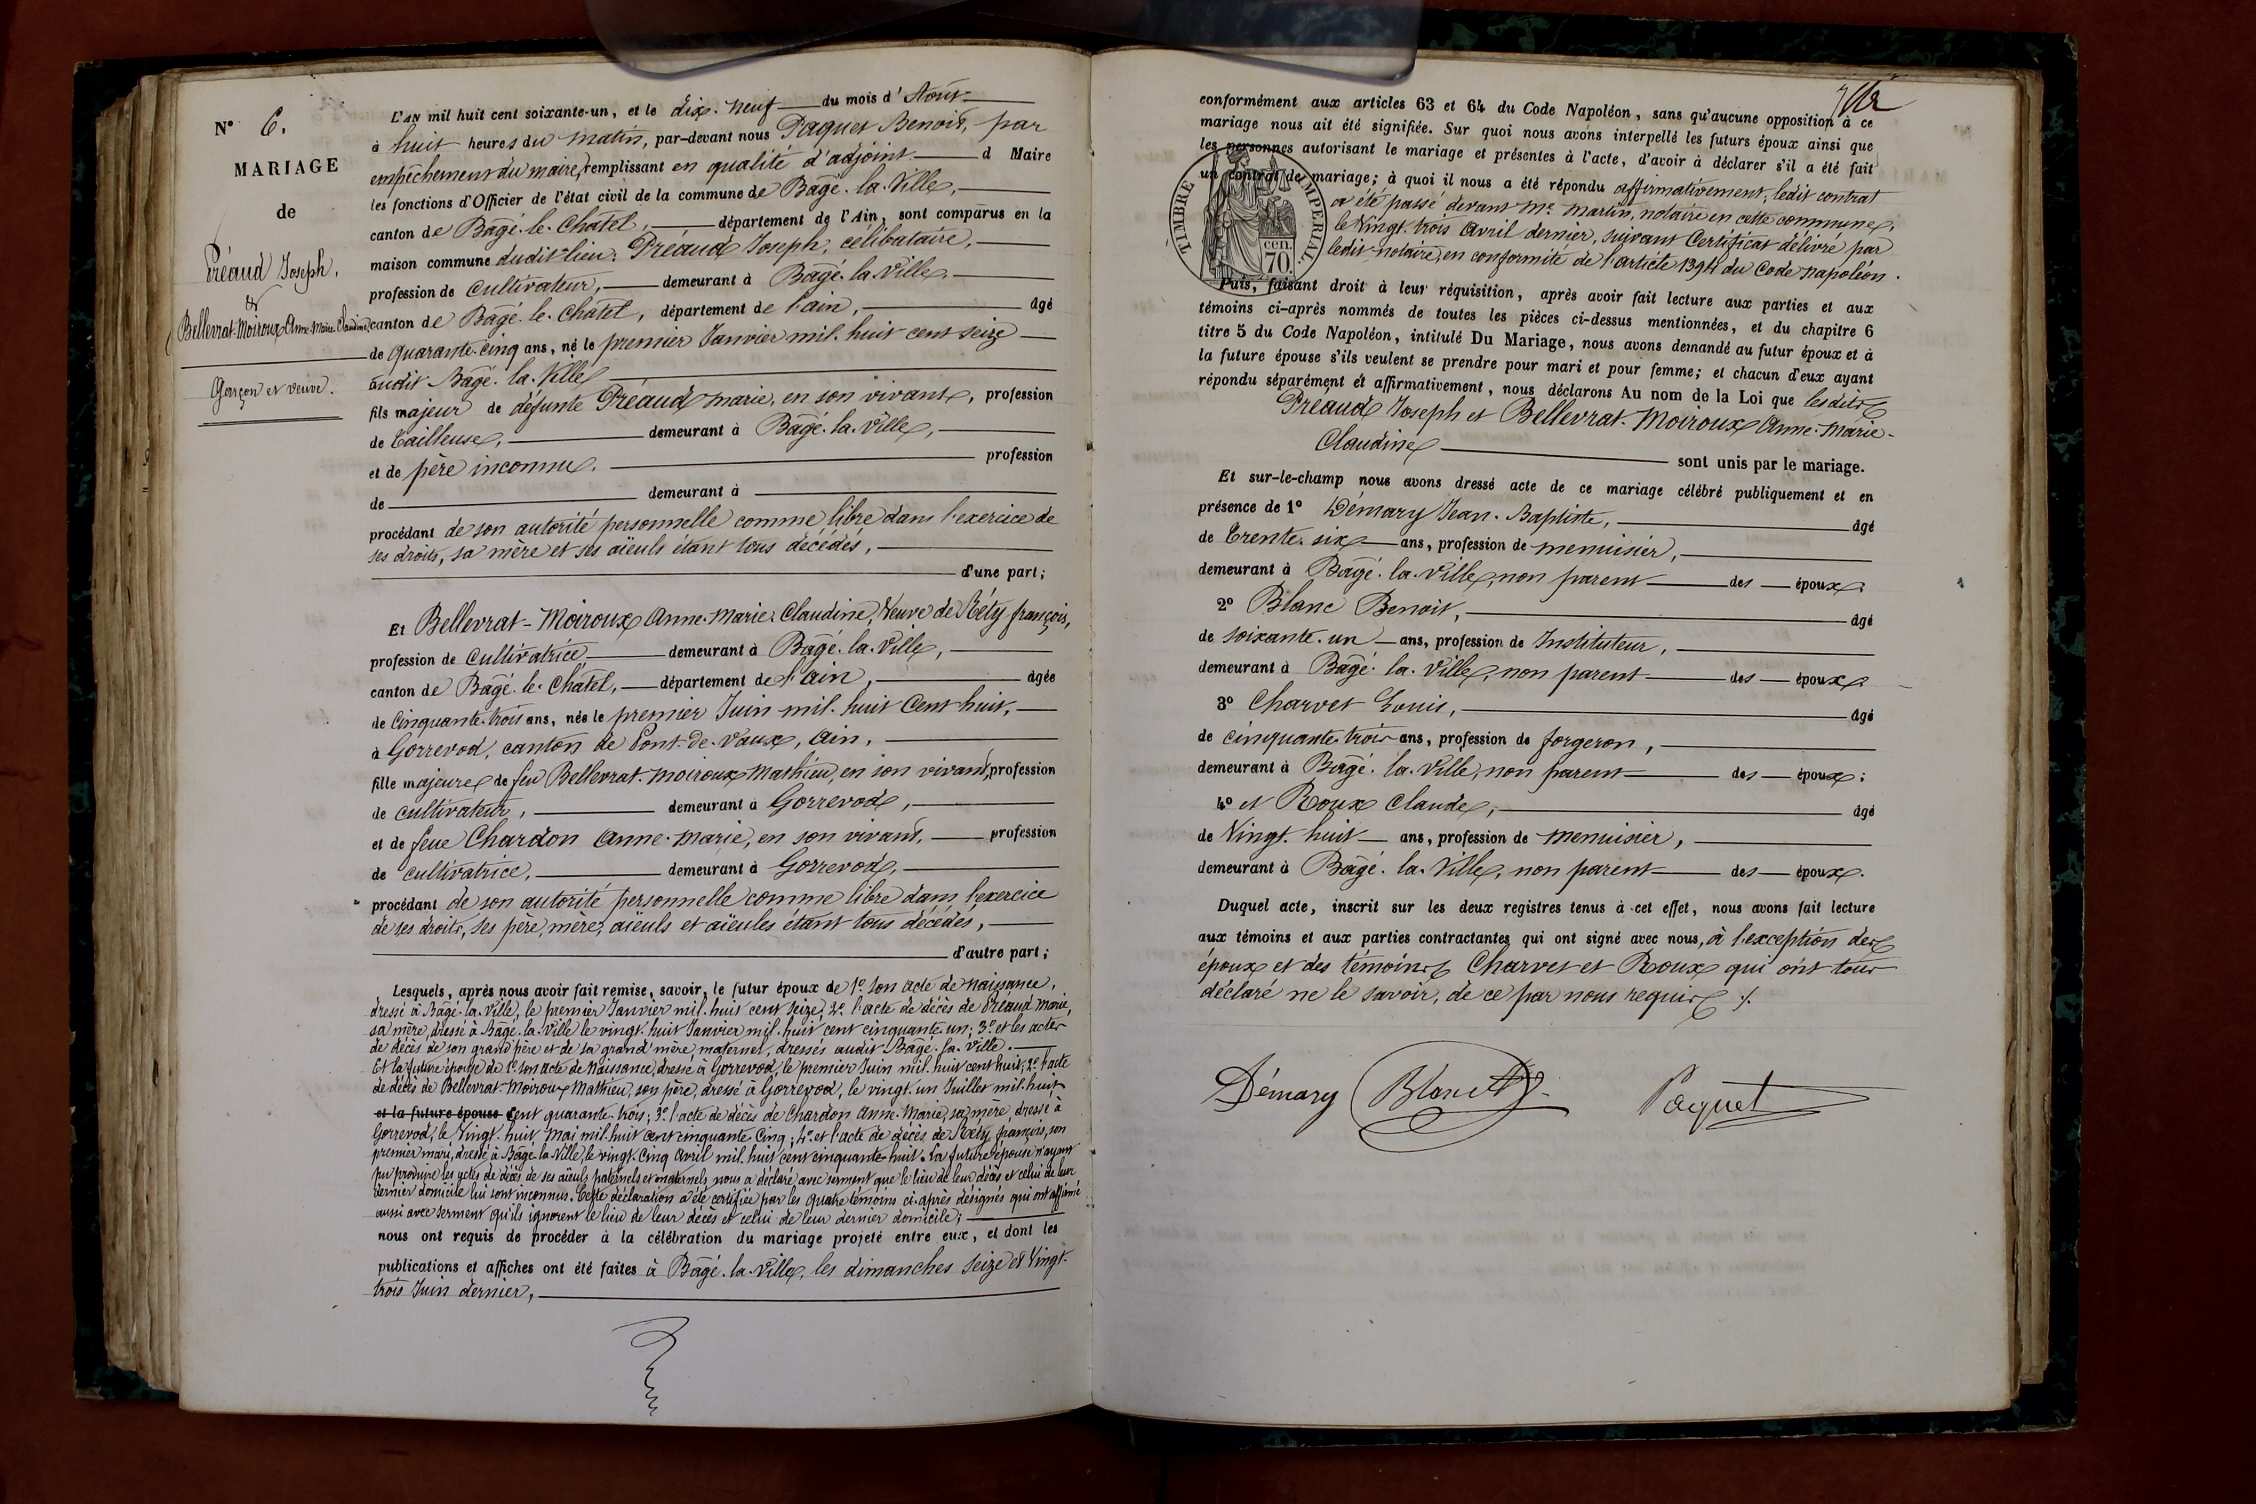 N° 6.
MARIAGE
de
Préaud Joseph,
&
Bellevrat-Moiroux Anne-Marie-Claudine
Garçon et veuve.
L'AN mil huit cent soixante-un, et le dix-neuf du mois d'Août
à huit heures du matin, par-devant nous Paquet Benoit, par
empêchement du maire, remplissant en qualité d'adjoint d Maire
les fonctions d'Officier de l'état civil de la commune de Bâgé-la-Ville,
canton de Bâgé-le-Châtel, département de l'Ain, sont comparus en la
maison commune dudit lieu: Préaud Joseph, célibataire,
profession de cultivateur, demeurant à Bâgé-la-Ville,
canton de Bâgé-le-Châtel, département de l'ain, âgé
de quarante-cinq ans, né le premier Janvier mil-huit cent seize
audit Bâgé-la-Ville
fils majeur de défunte Préaud marie, en son vivant, profession
de tailleuse, demeurant à Bâgé-la-Ville,
et de père inconnu. profession
de demeurant à
procédant de son autorité personnelle comme libre dans l'exercice de
ses droits, sa mère et ses aïeuls étant tous décédés,
d'une part;
Et Bellevrat-Moiroux Anne-Marie-Claudine, Veuve de Réty françois,
profession de cultivatrice demeurant à Bâgé-la-Ville,
canton de Bâgé-le-Châtel, département de l'ain, âgée
de cinquante-trois ans, née le premier Juin mil-huit cent huit,
à Gorrevod, canton de Pont-de-Vaux, ain,
fille majeure de feu Bellevrat-Moiroux Mathieu, en son vivant, profession
de cultivateur, demeurant à Gorrevod,
et de feue Chardon Anne-Marie, en son vivant, profession
de cultivatrice, demeurant à Gorrevod,
procédant de son autorité personnelle comme libre dans l'exercice
de ses droits, ses père, mère, aïeuls et aïeules étant tous décédés,
d'autre part;
Lesquels, après nous avoir fait remise, savoir, le futur époux de 1° son acte de naissance,
dressé à Bâgé-la-Ville, le premier Janvier mil-huit cent seize; 2° l'acte de décès de Préaud Marie,
sa mère, dressé à Bâgé-la-Ville le vingt-huit Janvier mil-huit cent cinquante-un; 3° et les actes
de décès de son grand père et de sa grand'mère maternel, dressés audit Bâgé-la-Ville.
Et la future épouse de 1° son acte de Naissance, dressé à Gorrevod, le premier Juin mil-huit cent huit; 2° l'acte
de décès de Bellevrat-Moiroux Mathieu, son père, dressé à Gorrevod, le vingt-un Juillet mil-huit
et la future épouse cent quarante-trois; 3° l'acte de décès de Chardon Anne-Marie, sa mère, dressé à
Gorrevod, le Vingt-huit Mai mil-huit cent cinquante-cinq; 4° et l'acte de décès de Réty françois, son
premier mari, dressé à Bâgé-la-Ville, le vingt-cinq Avril mil-huit cent cinquante-huit. La future épouse n'ayant
pu produire les actes de décès de ses aïeuls paternels et maternels, nous a déclaré avec serment que le lieu de leur décès et celui de leur
dernier domicile lui sont inconnus. Cette déclaration a été certifiée par les quatre témoins ci-après désignés qui ont affirmé
aussi avec serment qu'ils ignorent le lieu de leur décès et celui de leur dernier domicile;
nous ont requis de procéder à la célébration du mariage projeté entre eux, et dont les
publications et affiches ont été faites à Bâgé-la-Ville, les dimanches seize et Vingt-
trois Juin dernier,
conformément aux articles 63 et 64 du Code Napoléon, sans qu'aucune opposition à ce
mariage nous ait été signifiée. Sur quoi nous avons interpellé les futurs époux ainsi que
les personnes autorisant le mariage et présentes à l'acte, d'avoir à déclarer s'il a été fait
un contrat de mariage; à quoi il nous a été répondu affirmativement, ledit contrat
a été passé devant Me Martin, notaire en cette commune,
le Vingt-trois Avril dernier, suivant Certificat délivré par
ledit notaire, en conformité de l'article 1394 du Code Napoléon.
TIMBRE IMPERIAL.
cen.
70.
Puis, faisant droit à leur réquisition, après avoir fait lecture aux parties et aux
témoins ci-après nommés de toutes les pièces ci-dessus mentionnées, et du chapitre 6
titre 5 du Code Napoléon, intitulé Du Mariage, nous avons demandé au futur époux et à
la future épouse s'ils veulent se prendre pour mari et pour femme; et chacun d'eux ayant
répondu séparément et affirmativement, nous déclarons Au nom de la Loi que lesdits
Préaud Joseph et Bellevrat-Moiroux Anne-Marie-
Claudine sont unis par le mariage.
Et sur-le-champ nous avons dressé acte de ce mariage célébré publiquement et en
présence de 1° Démary Jean-Baptiste, âgé
de trente-six ans, profession de menuisier,
demeurant à Bâgé-la-Ville, non parent des époux;
2° Blanc Benoit, âgé
de soixante-un ans, profession de Instituteur,
demeurant à Bâgé-la-Ville, non parent des époux;
3° Charvet Louis, âgé
de cinquante-trois ans, profession de forgeron,
demeurant à Bâgé-la-Ville, non parent des époux;
4° et Roux Claude, âgé
de Vingt-huit ans, profession de menuisier,
demeurant à Bâgé-la-Ville, non parent des époux.
Duquel acte, inscrit sur les deux registres tenus à cet effet, nous avons fait lecture
aux témoins et aux parties contractantes qui ont signé avec nous, à l'exception des
époux et des témoins Charvet et Roux qui ont tous
déclaré ne le savoir, de ce par nous requis ./.
Démary Blanc Paquet